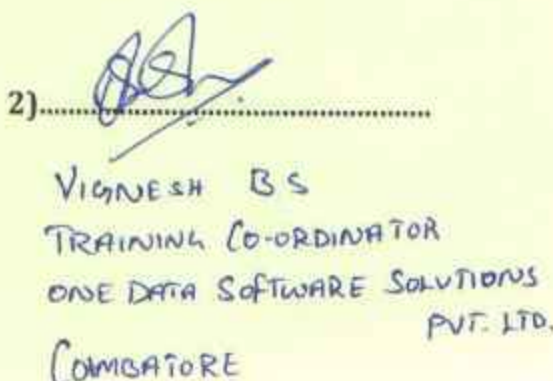 2)..............................................
VIGNESH B S
TRAINING CO-ORDINATOR
ONE DATA SOFTWARE SOLUTIONS
PVT. LTD.
COIMBATORE